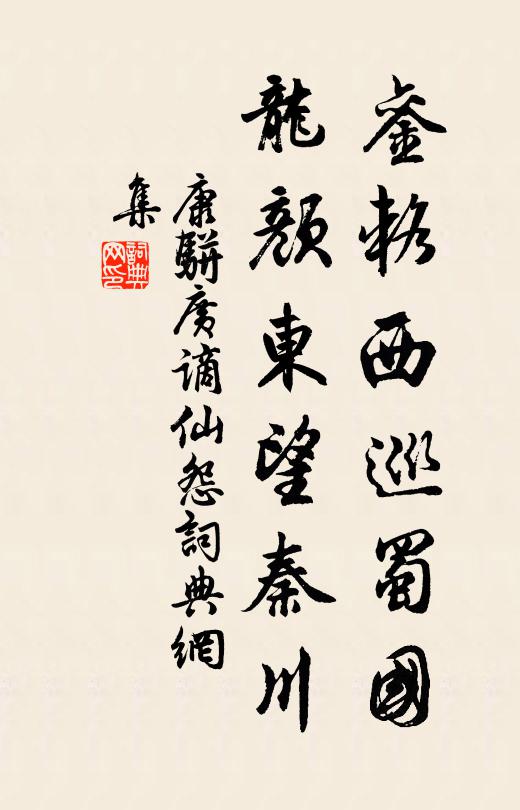 鑾輅西巡蜀國
龍顏東望秦川
康駢廣謫仙怨詞典網
集
詞典
网印